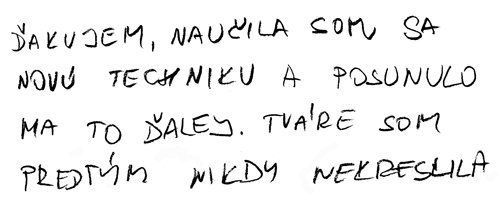 ĎAKUJEM, NAUČILA SOM SA
NOVÚ TECHNIKU A POSUNULO
MA TO ĎALEJ. TVÁRE SOM
PREDTÝM NIKDY NEKRESLILA